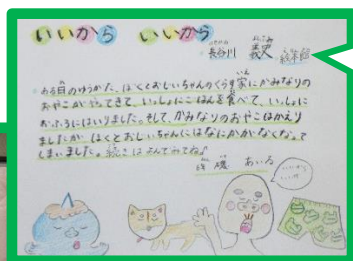 いいから いいから
長谷川 義史 絵本館
はせがわ よしふみ
ある日のゆうがた、ぼくとおじいちゃんのくらす家にかみなりの
おやこがやってきて、いっしょにごはんを食べて、いっしょに
おふろにはいりました。そして、かみなりのおやこはかえり
ましたが ぼくとおじいちゃんにはなにかがなくなって
しまいました。続きはよんでみてね♪
あいる